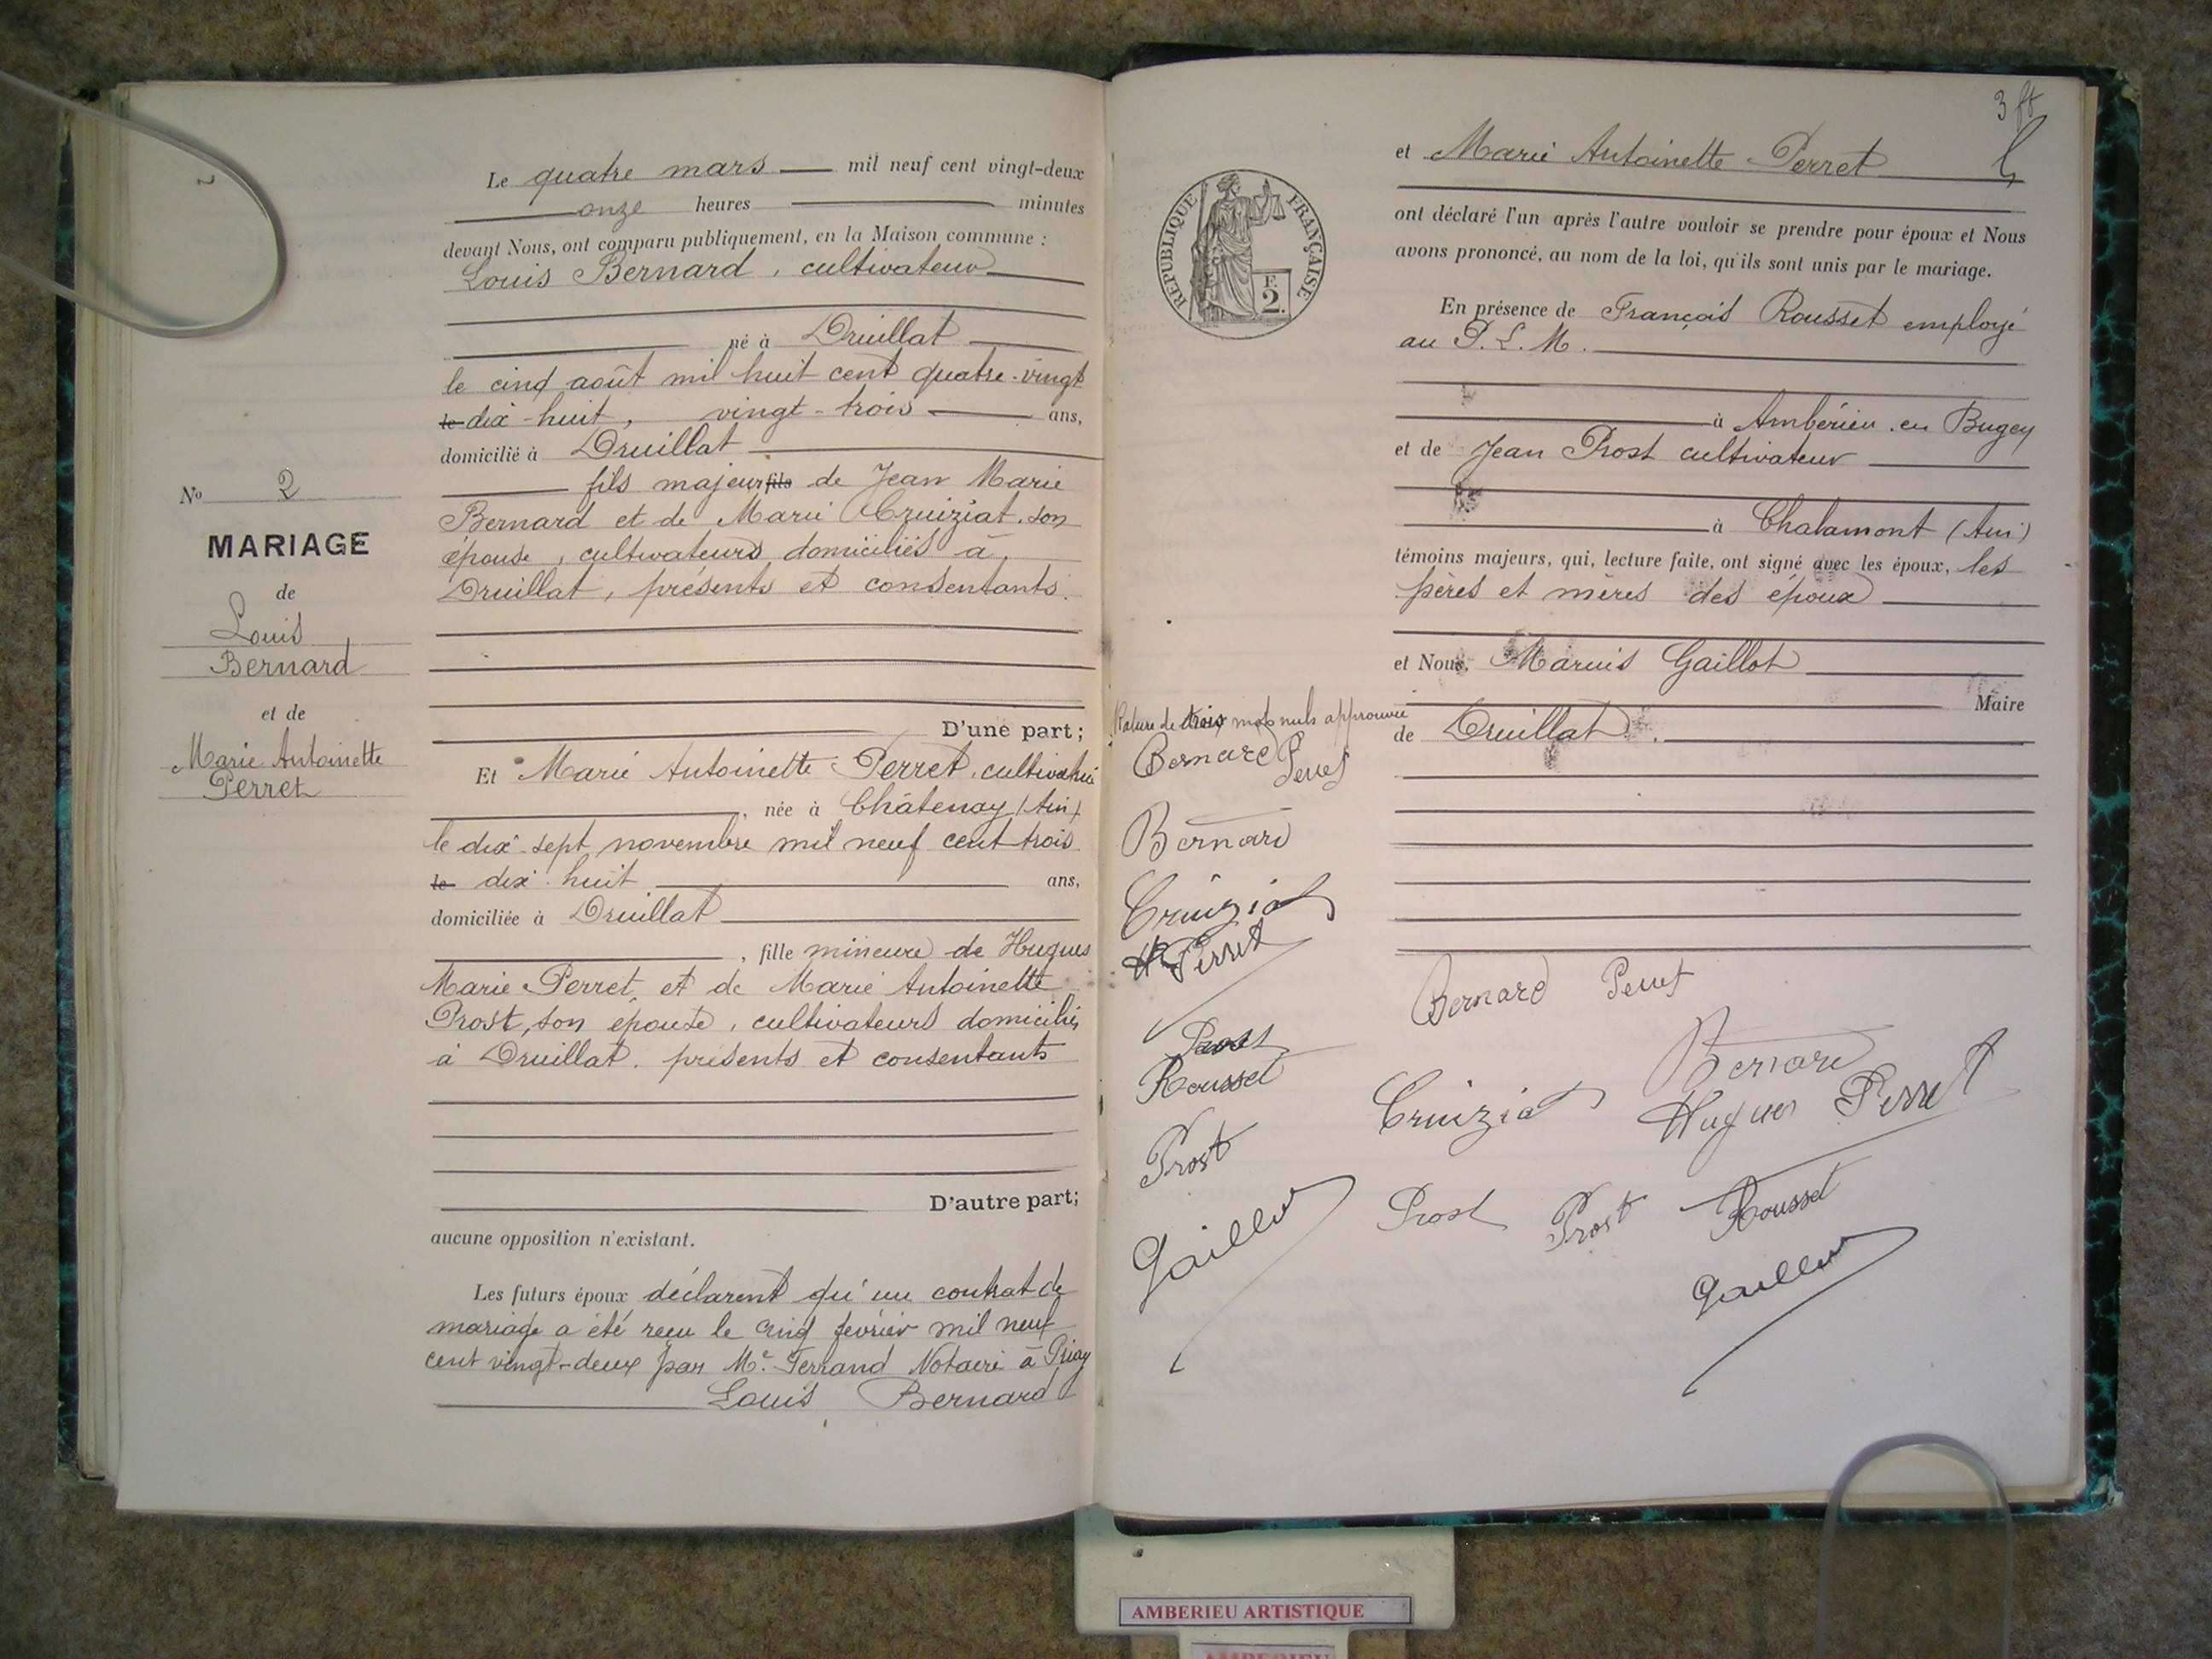 Le quatre mars mil neuf cent vingt-deux
onze heures minutes
devant Nous, ont comparu publiquement, en la Maison commune :
Louis Bernard, cultivateur
né à Druillat
le cinq août mil huit cent quatre-vingt
le dix-huit, vingt-trois ans,
domicilié à Druillat
fils majeur fils de Jean Marie
Bernard et de Marie Cruiziat, son
épouse, cultivateurs domiciliés à,
Druillat, présents et consentants.
No 2
MARIAGE
de
Louis
Bernard
et de
Marie Antoinette
Perret
D'une part;
Et Marie Antoinette Perret, cultivatrice
, née à Châtenay (Ain)
le dix-sept novembre mil neuf cent trois
le dix-huit ans,
domiciliée à Druillat
, fille mineure de Hugues
Marie Perret, et de Marie Antoinette
Prost, son épouse, cultivateurs domiciliés
à Druillat, présents et consentants
D'autre part;
aucune opposition n'existant.
Les futurs époux déclarent qu'un contrat de
mariage a été reçu le cinq février mil neuf
cent vingt-deux par Me Ferrand Notaire à Priay
Louis Bernard
3 ft
RÉPUBLIQUE FRANÇAISE
F.
2.
et Marie Antoinette Perret
ont déclaré l'un après l'autre vouloir se prendre pour époux et Nous
avons prononcé, au nom de la loi, qu'ils sont unis par le mariage.
En présence de François Rousset employé
au P.L.M.
à Ambérieu-en Bugey
et de Jean Prost cultivateur
à Chalamont (Ain)
témoins majeurs, qui, lecture faite, ont signé avec les époux, les
pères et mères des époux
et Nous, Marius Gaillot
Maire
de Druillat.
Rature de trois mots nuls approuvée
Bernard P
Perret
Bernard
Cruiziat
H Perret
Prost
Rousset
Prost
Gaillot
Bernard Perret
Bernard
Cruiziat Hugues Perret
Prost Prost Rousset
Gaillot
AMBERIEU ARTISTIQUE
AMBERIEU